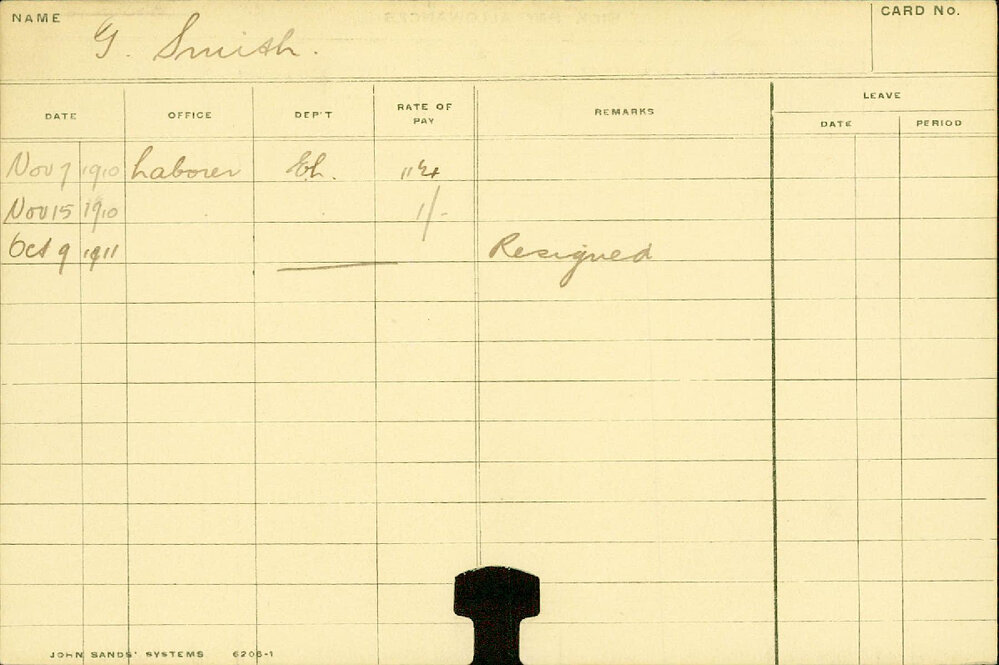 NAME G. Smith. CARD No.
DATE OFFICE DEP'T RATE OF PAY REMARKS LEAVE
DATE PERIOD
Nov 7 1910 Laborer
Nov 15 1910 1/-
Oct 9 1911 Resigned
JOHN SANDS' SYSTEMS 6206-1